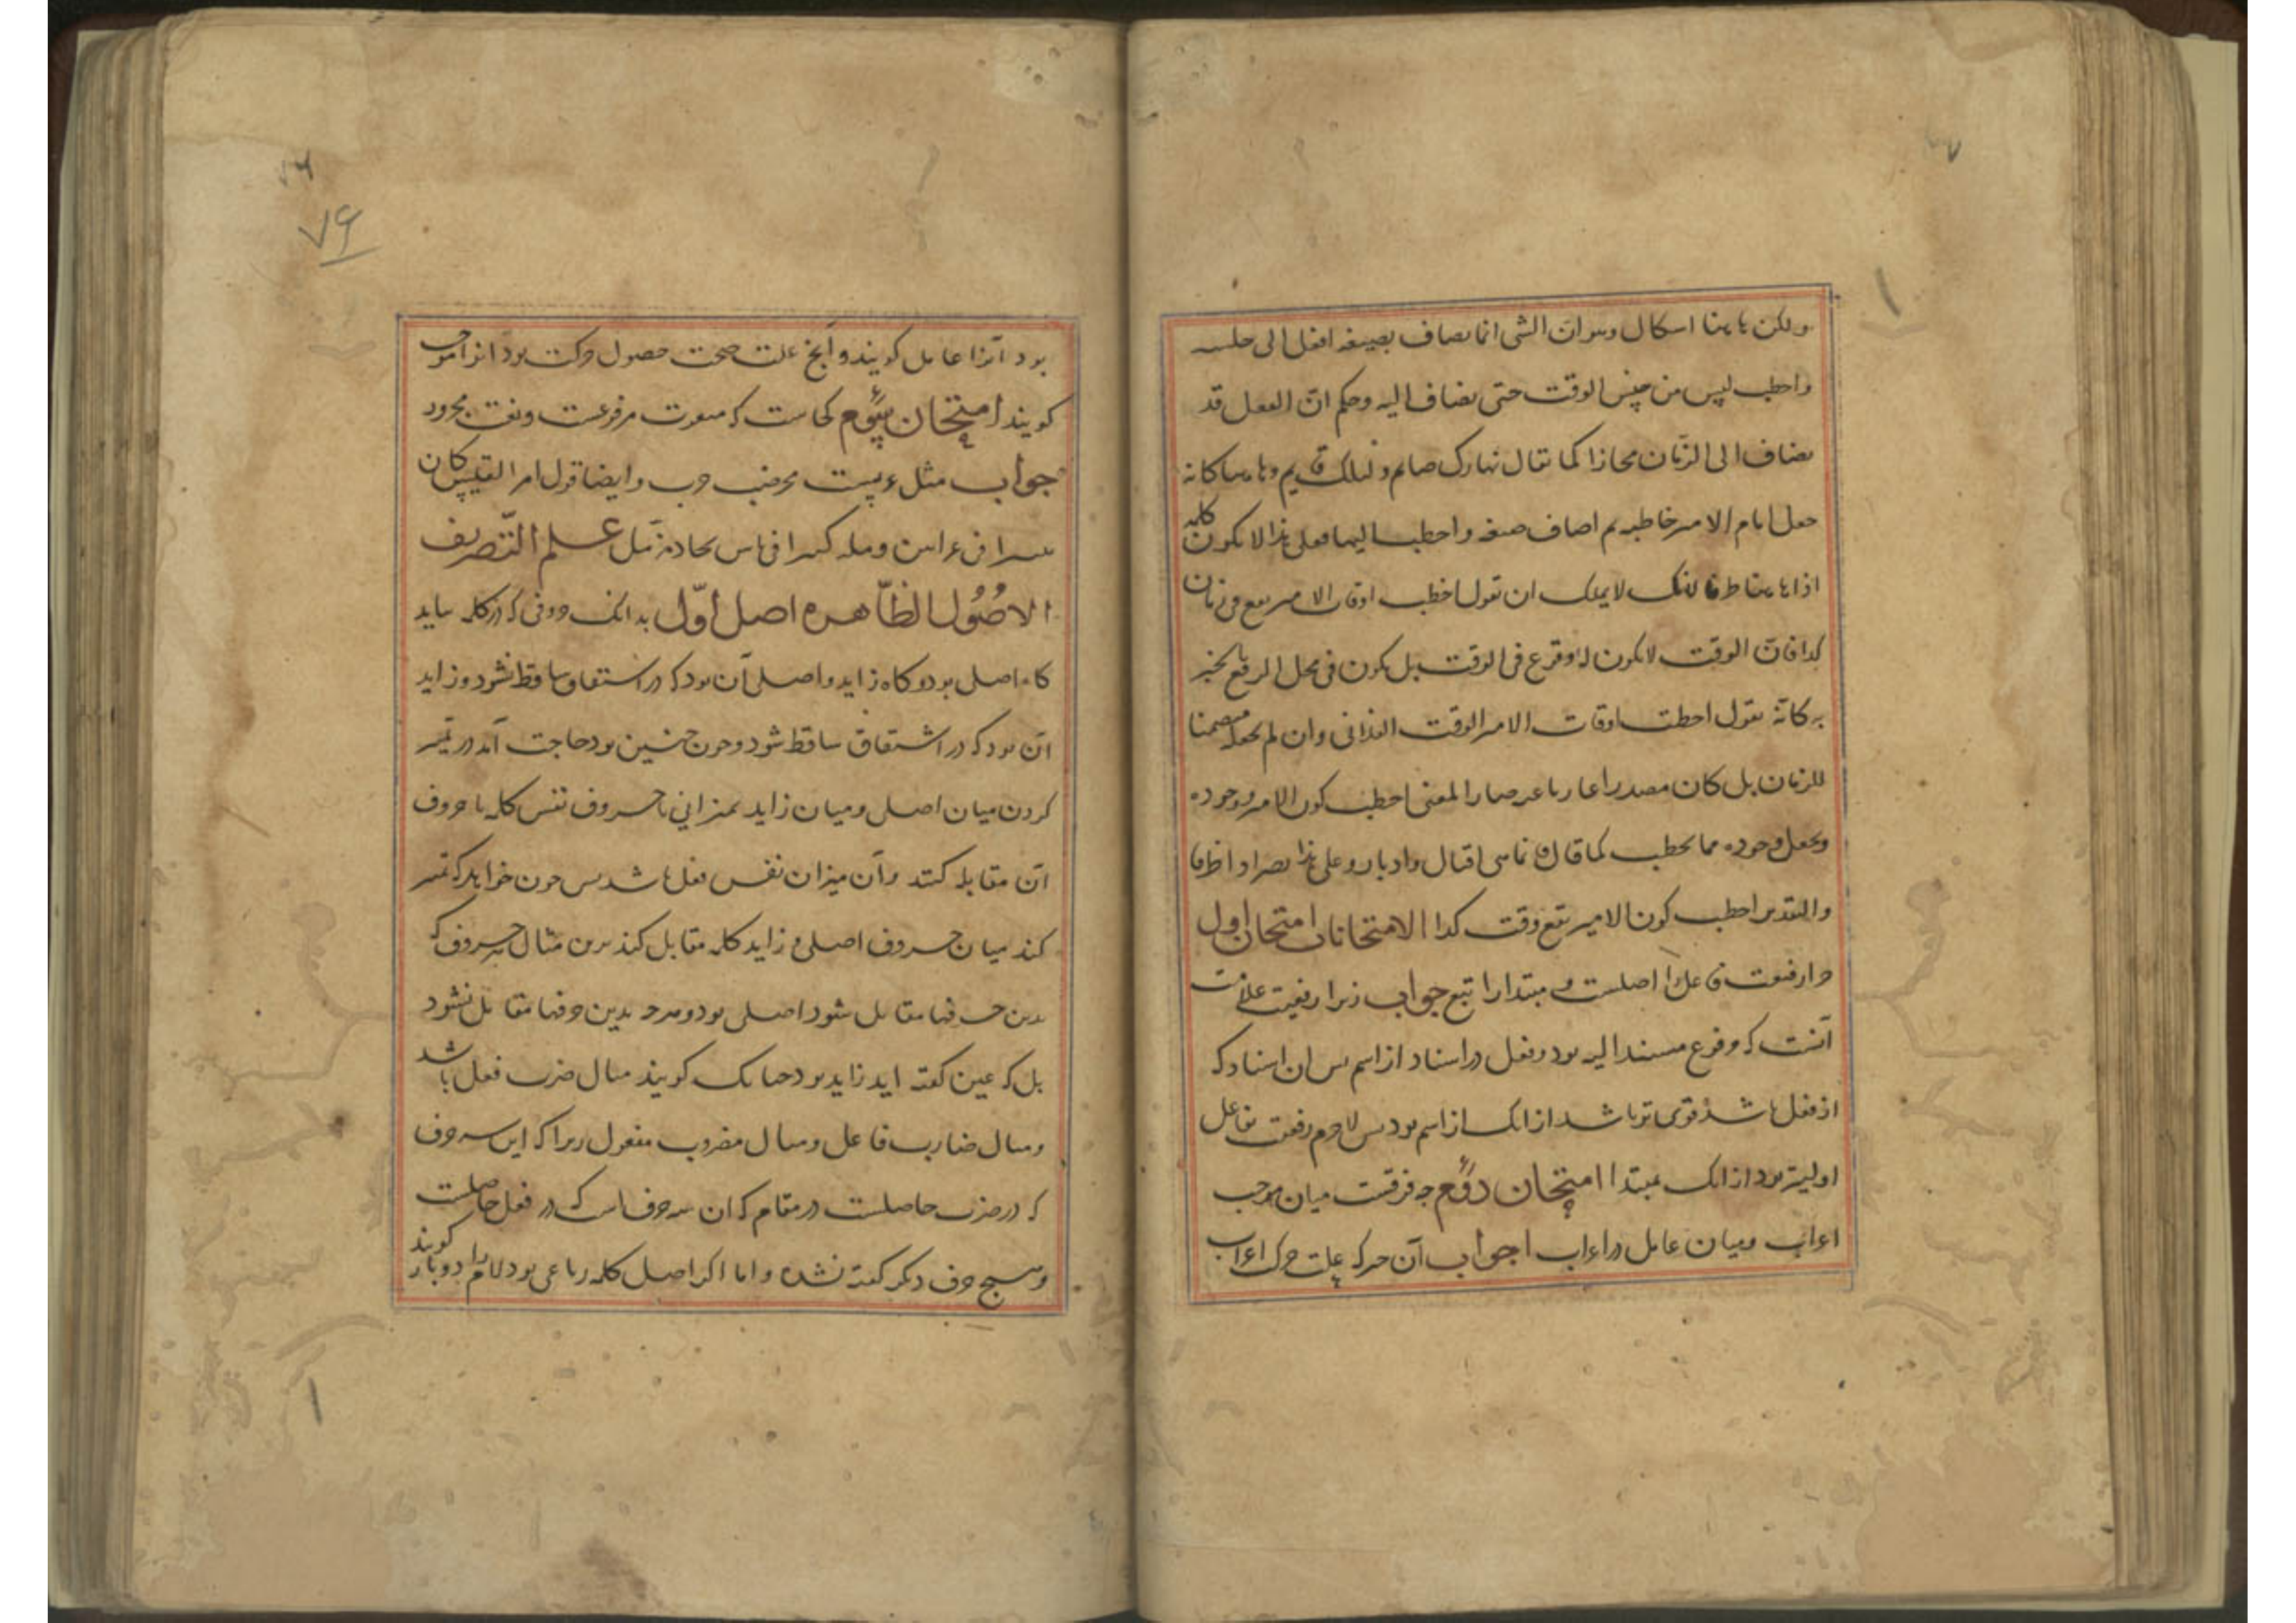 ولکن هاهنا اسکال وهو ان الشی انما یضاف بصیغه افعل الی جنسه
واخطب لیس من جنس الوقت حتی یضاف الیه وحکم ان الفعل قد
یضاف الی الزمان مجازا کما یقال نهارک صایم ولیلک قایم وهاهنا کانه
جعل ایام الامیر خاطبه ثم اضاف صیغه واخطب الیها فعلی هذا لا یکون کلمه
اذا هاهنا ظرفا لانک لا یمکنک ان تقول اخطب اوقات الامیر یقع فی زمان
کذا فان الوقت لا یکون له وقوع فی الوقت بل یکون فی محل الرفع بالخبر
به کانه یقول اخطب اوقات الامیر الوقت الفلانی وان لم یجعله متضمنا
للزمان بل کان مصدرا عاریا عنه صار المعنی اخطب کون الامیر ووجوده
ویجعل وجوده مما یخطب کما قال فانما هی اقبال وادبار وعلی هذا یصیر اذا ظرفا
والتقدیر اخطب کون الامیر یقع وقت کذا الامتحانات امتحان اول
چرا رفعیت فاعل را اصلست و مبتدا را تبع جواب زیرا رفعیت علامت
آنست که وقوع مسند الیه بود وفعل در اسناد از اسم پس ان اسناد که
از فعل باشد قوی تر باشد از انک از اسم بود پس لاجرم رفعیت بفاعل
اولیتر بود از انک بمبتدا امتحان دوم چه فرقست میان موجب
اعراب ومیان عامل در اعراب جواب آن حرکه علت حرکت اعراب
بود آنرا عامل گویند وآنچ علت صحت حصول حرکت بود انرا موجب
گویند امتحان سیوم کجاست که منعوت مرفوعست ونعت مجرور
جواب مثل حجر ضب خرب وایضا قول امرء القیس کان
ثبیرا فی عرانین وبله کبیر اناس فی بجاد مزمل علم التصریف
الاصول الظاهره اصل اول بدانک حروفی که در کلمه بیاید
گاه اصلی بود وگاه زاید واصلی آن بود که در اشتقاق ساقط نشود وزاید
آن بود که در اشتقاق ساقط شود وچون چنین بود حاجت آمد در تمییز
کردن میان اصلی ومیان زاید بمیزانی تا حروف نفس کلمه با حروف
آن مقابله کنند وآن میزان نفس فعل باشد پس چون خواهد که تمییز
کند میان حروف اصلی و زاید کلمه مقابل کند برین مثال هر حروف که
بدین حرفها مقابل شود اصلی بود وهرچه بدین حرفها مقابل نشود
بل که عین گفته اید زاید بود چنانک گویند مثال ضرب فعل باشد
ومثال ضارب فاعل ومثال مضروب مفعول زیرا که این سه حرف
که در ضرب حاصلست در مقام که ان سه حرف است که در فعل حاصلست
وهیچ حرف دیگر گفته نشده واما اگر اصل کلمه رباعی بود لام را دوبار گویند
۷۶